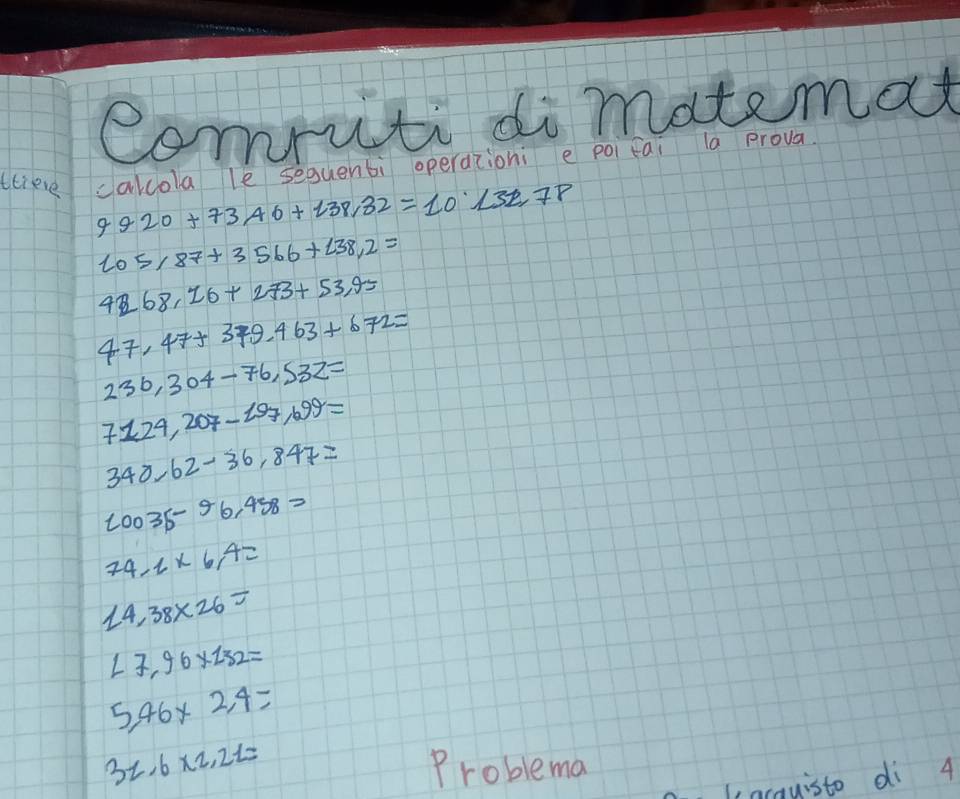 Compiti di matemat
ttiere
calcola le seguenti operazioni e poi fai la prova.
9920+73,46+138,32=10·131,78
105,87+3566+138,2=
4268,16+273+53,9=
47,47+379,463+672=
236,304-76,532=
7124,207-197,699=
340,62-36,847=
10035-96,458=
74,1×6,4=
14,38×26=
17,96×132=
5,46× 2,4=
31,6×1,21=
Problema
l'acquisto di 4